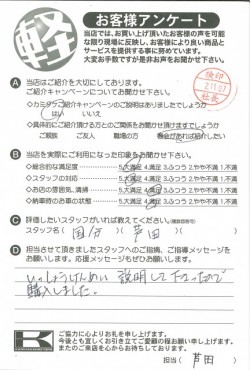 軽
お客様アンケート
当店では、お買い上げ頂いたお客様の声を可能
な限り現場に反映し、お客様により良い商品と
サービスを提供する事に努めています。
大変お手数ですが是非お声をお聞かせ下さい。
検印
2.11.07
社長
A 当店はご紹介を大切にしております。
ご紹介キャンペーンについてお聞かせ下さい。
はい いいえ
ご親族 ご友人 職場の方
B 当店を実際にご利用になった印象をお聞かせ下さい。
◇総合的な満足度 5.大満足 4.満足 3.ふつう 2.やや不満 1.不満
◇スタッフの対応 5.大満足 4.満足 3.ふつう 2.やや不満 1.不満
◇お店の雰囲気、清掃 5.大満足 4.満足 3.ふつう 2.やや不満 1.不満
◇納車時のお車の状態 5.大満足 4.満足 3.ふつう 2.やや不満 1.不満
C 評価したいスタッフがいれば教えてください。(複数回答可)
スタッフ名( 国分 )( 芦田 )
D 担当させて頂きましたスタッフへのご指摘、ご指導メッセージを
お願いします。応援メッセージもぜひお願いします。
いっしょうけんめい 説明して下さったので
購入しました。
K
ご協力に心よりお礼を申し上げます。
今後とも宜しくお引き立てご愛顧の程お願い申し上げます。
またのご来店を心からお待ちしております。
担当( 芦田 )